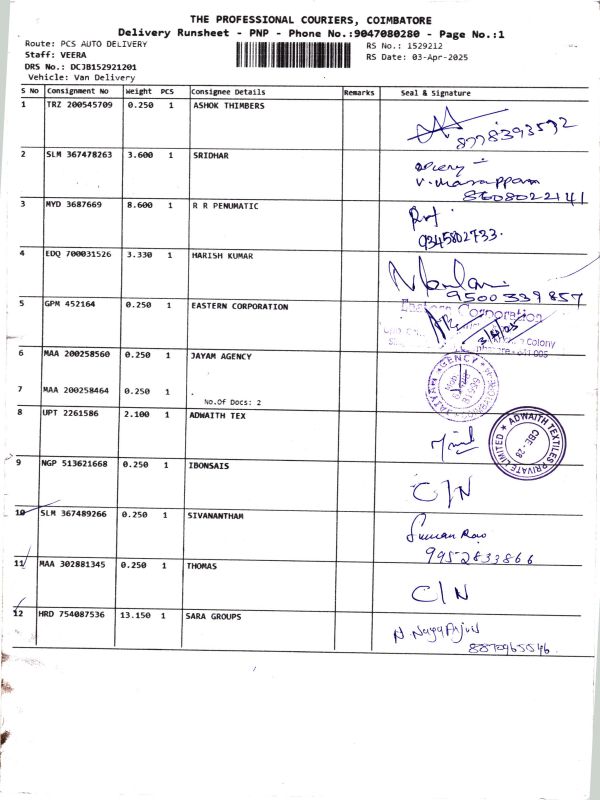 THE PROFESSIONAL COURIERS, COIMBATORE
Delivery Runsheet - PNP - Phone No.:9047080280 - Page No.:1
Route: PCS AUTO DELIVERY
RS No.: 1529212
Staff: VEERA
RS Date: 03-Apr-2025
DRS No.: DCJB152921201
Vehicle: Van Delivery
S No Consignment No Weight PCS Consignee Details Remarks Seal & Signature
1 TRZ 200545709 0.250 1 ASHOK THIMBERS
8778393592
2 SLM 367478263 3.600 1 SRIDHAR
8608022141
3 MYD 3687669 8.600 1 R R PENUMATIC
9345802733.
4 EDQ 700031526 3.330 1 HARISH KUMAR
9500339857
5 GPM 452164 0.250 1 EASTERN CORPORATION
Eastern Corporation
Colony
6 MAA 200258560 0.250 1 JAYAM AGENCY
AGENCY
7 MAA 200258464 0.250 1
No.Of Docs: 2
8 UPT 2261586 2.100 1 ADWAITH TEX
ADWAITH TEXTILES PRIVATE LIMITED
CBE - 28
9 NGP 513621668 0.250 1 IBONSAIS
C/N
10 SLM 367489266 0.250 1 SIVANANTHAM
9952833866
11 MAA 302881345 0.250 1 THOMAS
C/N
12 HRD 754087536 13.150 1 SARA GROUPS
N. Nagarjun
8870965546